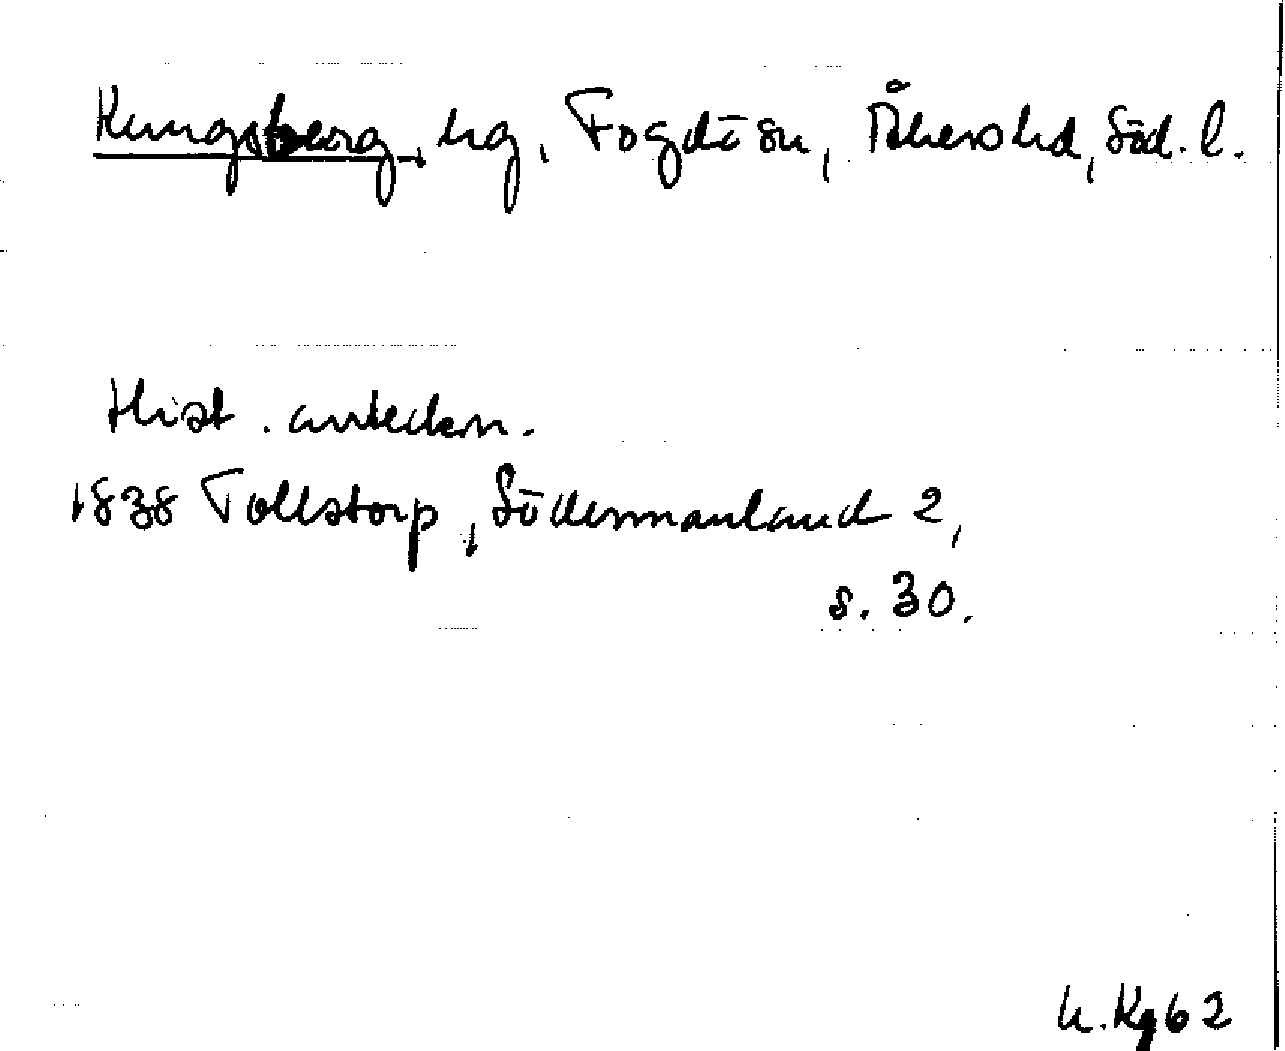 Kungsberg, hg, Fogdön, Åkers hd, Söd. l.
Hist. anteckn.
1838 Tollstorp, Södermanland 2,
s. 30.
K. Kg 62